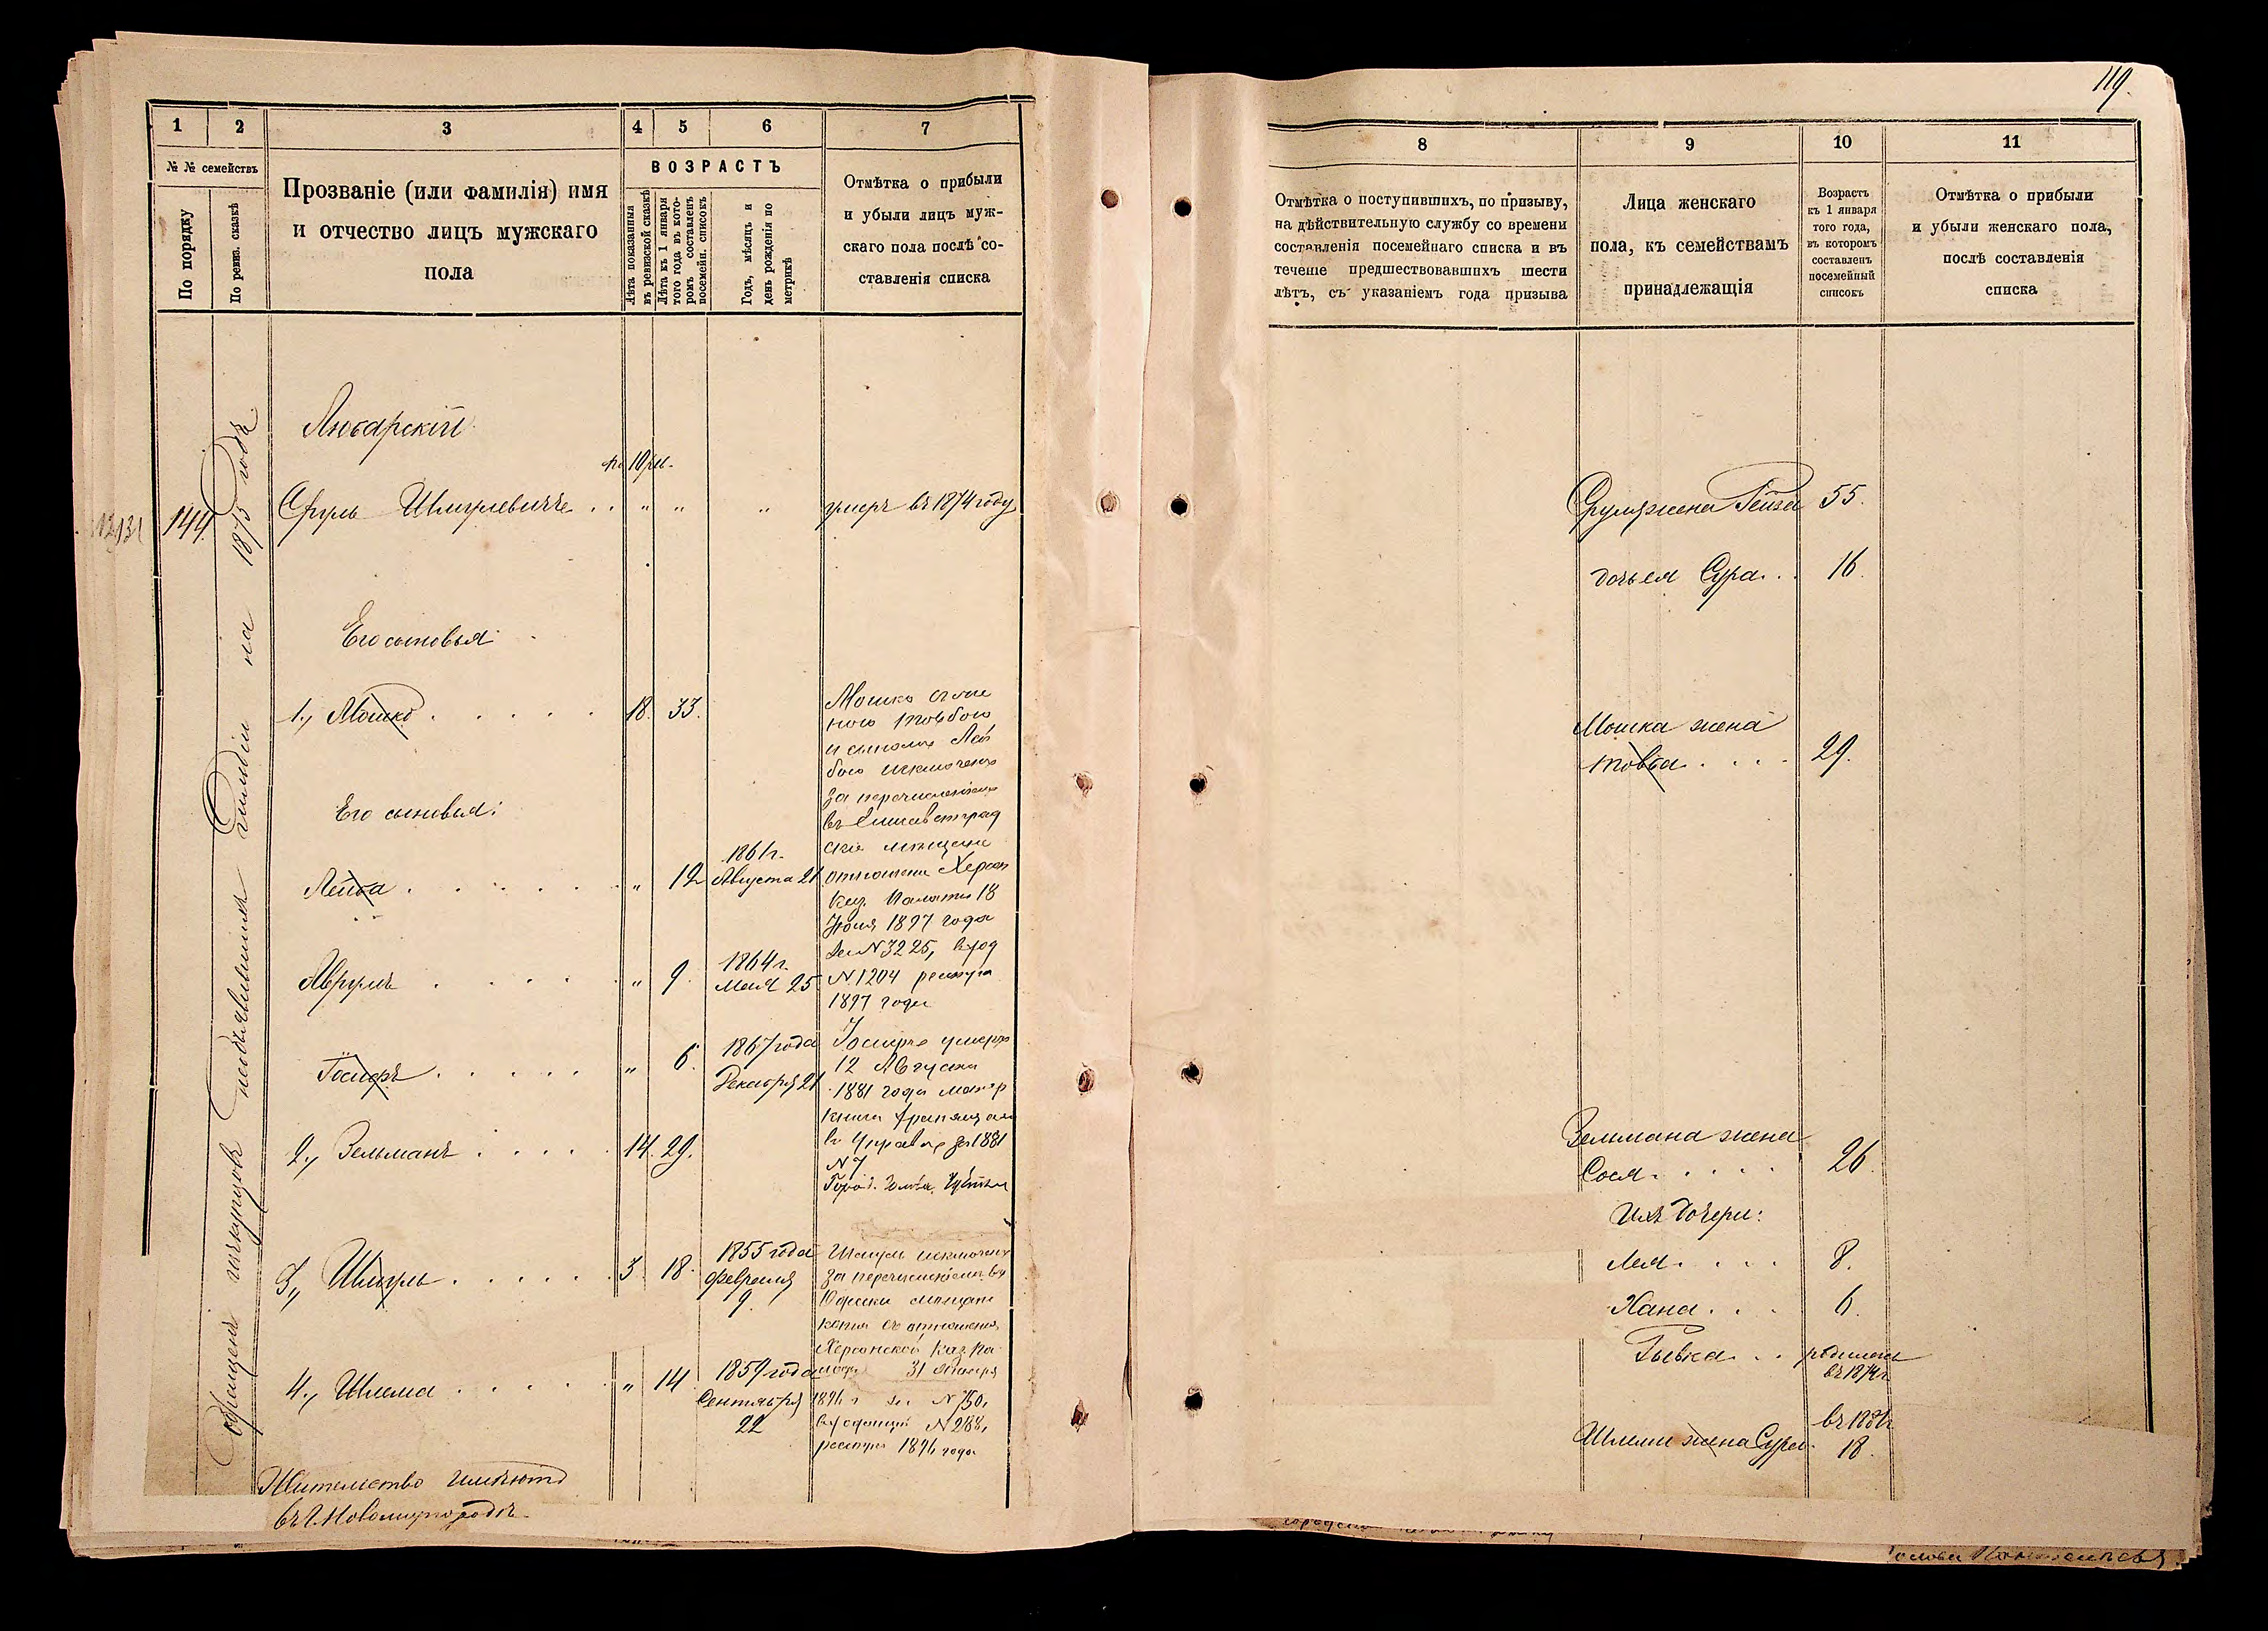 119.
1
2
3
4
5
6
7
№ № семействъ
По порядку
По ревиз. сказкѣ
Прозваніе (или фамилія) имя
и отчество лицъ мужскаго
пола
ВОЗРАСТЪ
Лѣта показанныя
въ ревизской сказкѣ
Лѣта къ 1 января
того года въ кото-
ромъ составленъ
посемейн. списокъ
Годъ, мѣсяцъ и
день рожденія по
метрикѣ
Отмѣтка о прибыли
и убыли лицъ муж-
скаго пола послѣ со-
ставленія списка
Любарскій
по 10 рев.
144
Сруль Шмулевичъ . . " " " умеръ въ 1874 году
Его сыновья
1., Мошко . . . . . 18. 33.
Мошко съ же
ною Товбою
и сыномъ Лей
бою исключенъ
за перечисленіемъ
въ Елисаветград
скіе мѣщане
отношеніе Херсон
Каз. Палаты 18
Іюня 1897 года
за № 3225, вход
№ 1204 реестра
1897 года
Его сыновья:
Лейба . . . . . " 12
1861 г.
Августа 21
Аврумъ . . . . . " 9.
1864 г.
Мая 25.
Іосифъ . . . . . " 6.
1867 года
Декабря 21
Іосифъ умеръ
12 Августа
1881 года метр
книга хранящая
въ Управѣ за 1881
№ 7
2., Зельманъ . . . . . 14. 29.
3., Шмуль . . . . . 3. 18.
1855 года
Февраля
9.
Шмуль исключенъ
за перечисленіемъ въ
Одесскіе мѣщане
копія съ отношенія
Херсонской Каз. Па-
латы 31 Января
1896 г за № 750,
входящій № 288,
реестра 1896 года
4., Шлема . . . . . " 14.
1859 года
Сентября
22
Жительство имѣютъ
въ г. Новомиргородѣ.
8
9
10
11
Отмѣтка о поступившихъ, по призыву,
на дѣйствительную службу со времени
составленія посемейнаго списка и въ
теченіе предшествовавшихъ шести
лѣтъ, съ указаніемъ года призыва
Лица женскаго
пола, къ семействамъ
принадлежащія
Возрастъ
къ 1 января
того года,
въ которомъ
составленъ
посемейный
списокъ
Отмѣтка о прибыли
и убыли женскаго пола,
послѣ составленія
списка
Сруля жена Гейза 55.
дочь ея Сура . . 16.
Мошка жена
Товба . . . . 29.
Зельмана жена
Сося . . . . . 26.
Ихъ дочери:
Лея . . . . 8.
Хана . . . 6.
Рывка . . родилась
въ 1874 г
въ 1881 г
Шлемы жена Сура . 18.